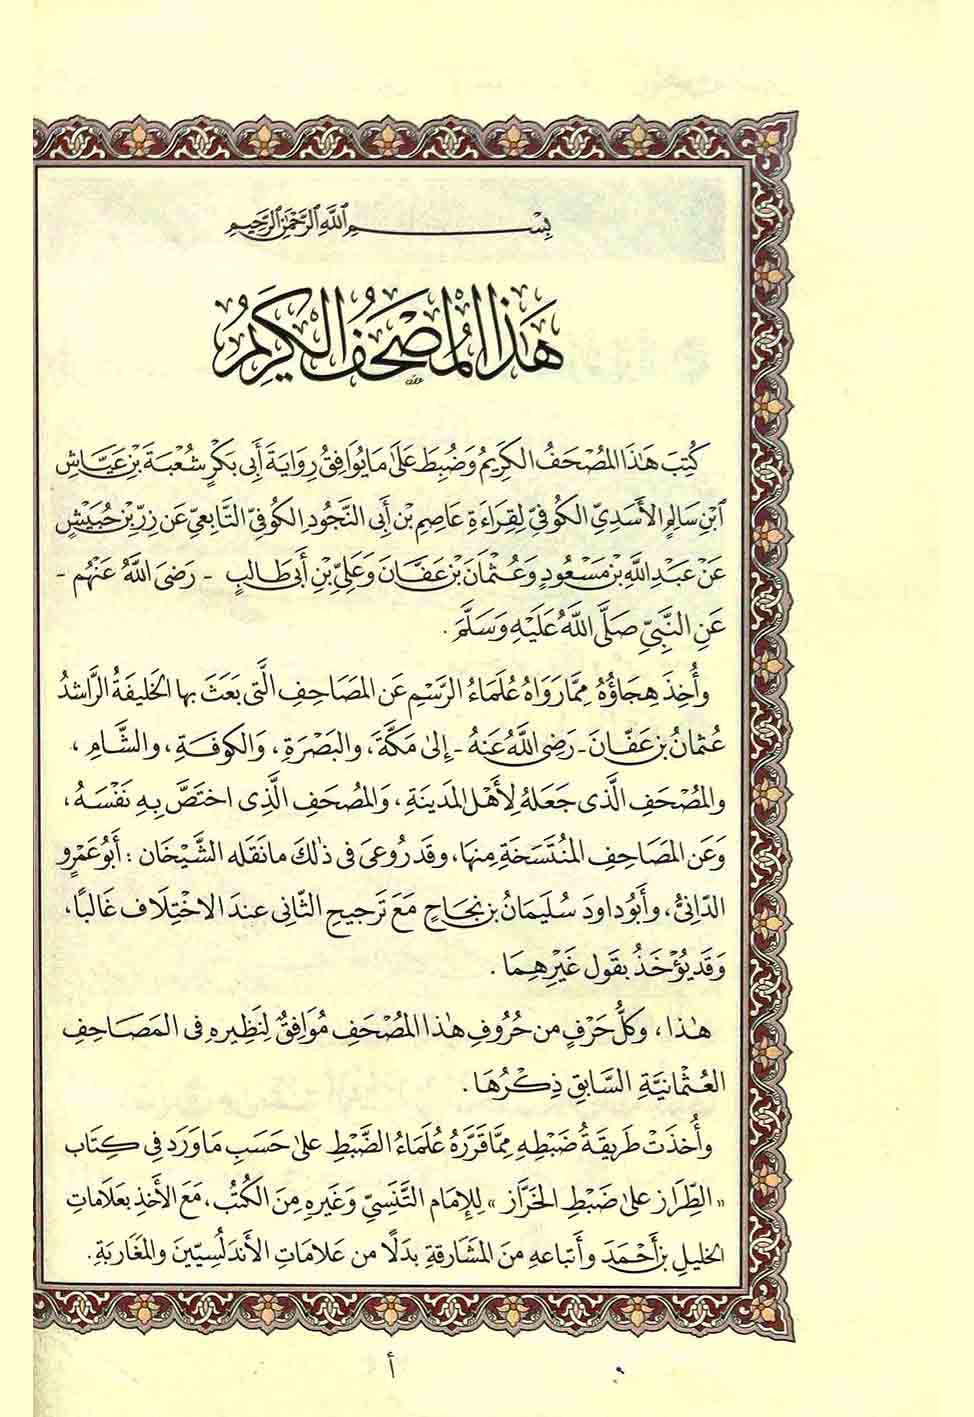 بِسْمِ ٱللَّهِ ٱلرَّحْمَٰنِ ٱلرَّحِيمِ
هَٰذَا الْمُصْحَفُ الْكَرِيمُ
كُتِبَ هَٰذَا المُصْحَفُ الكَرِيمُ وَضُبِطَ عَلَىٰ مَا يُوَافِقُ رِوَايَةَ أَبِى بَكْرٍ شُعْبَةَ بْنِ عَيَّاشِ
ٱبْنِ سَالِمٍ الأَسَدِىِّ الكُوفِىِّ لِقِرَاءَةِ عَاصِمِ بْنِ أَبِى النَّجُودِ الكُوفِىِّ التَّابِعِىِّ عَن زِرِّ بْنِ حُبَيْشٍ
عَنْ عَبْدِ اللَّهِ بْنِ مَسْعُودٍ وَعُثْمَانَ بْنِ عَفَّانَ وَعَلِىِّ بْنِ أَبِى طَالِبٍ - رَضِىَ اللَّهُ عَنْهُم -
عَنِ النَّبِىِّ صَلَّى اللَّهُ عَلَيْهِ وَسَلَّمَ.
وأُخِذَ هِجَاؤُهُ مِمَّا رَوَاهُ عُلَمَاءُ الرَّسْمِ عَنِ المَصَاحِفِ الَّتِى بَعَثَ بِهَا الخَلِيفَةُ الرَّاشِدُ
عُثمَانُ بْنُ عَفَّانَ - رَضِىَ اللَّهُ عَنهُ - إِلىٰ مَكَّةَ، والبَصْرَةِ، وَالكوفَةِ، والشَّامِ،
والمُصْحَفِ الَّذِى جَعَلَهُ لِأَهْلِ المَدِينَةِ، وَالمُصْحَفِ الَّذِى اختَصَّ بِهِ نَفْسَهُ،
وَعَنِ المَصَاحِفِ المُنْتَسَخَةِ مِنهَا، وقَد رُوعِىَ فِى ذٰلِكَ مَا نَقَلَه الشَّيْخَان: أَبُو عَمْرٍو
الدّانِىُّ، وأَبُو دَاوُدَ سُلَيمَانُ بْنُ نَجَاحٍ مَعَ تَرجِيحِ الثَّانِى عِندَ الاخْتِلَاف غَالِبًا،
وَقَد يُؤْخَذُ بِقَولِ غَيْرِهِمَا.
هٰذا، وكُلُّ حَرْفٍ مِن حُرُوفِ هٰذَا المُصْحَفِ مُوَافِقٌ لِنَظِيرِهِ فِى المَصَاحِفِ
العُثْمَانِيَّةِ السَّابِقِ ذِكْرُهَا.
وأُخِذَتْ طَرِيقَةُ ضَبْطِهِ مِمَّا قَرَّرَهُ عُلَمَاءُ الضَّبْطِ عَلىٰ حَسَبِ مَا وَرَدَ فِى كِتَاب
«الطِّرَازِ عَلىٰ ضَبْطِ الخَرَّاز» لِلإِمَام التَّنَسِىِّ وَغَيرِهِ مِنَ الكُتُب، مَعَ الأَخْذِ بِعَلَامَاتِ
الخَلِيلِ بْنِ أَحْمَدَ وأَتبَاعِهِ مِنَ المَشَارِقَةِ بَدَلًا مِن عَلَامَاتِ الأَندَلُسِيّينَ والمَغَارِبَةِ.
أ